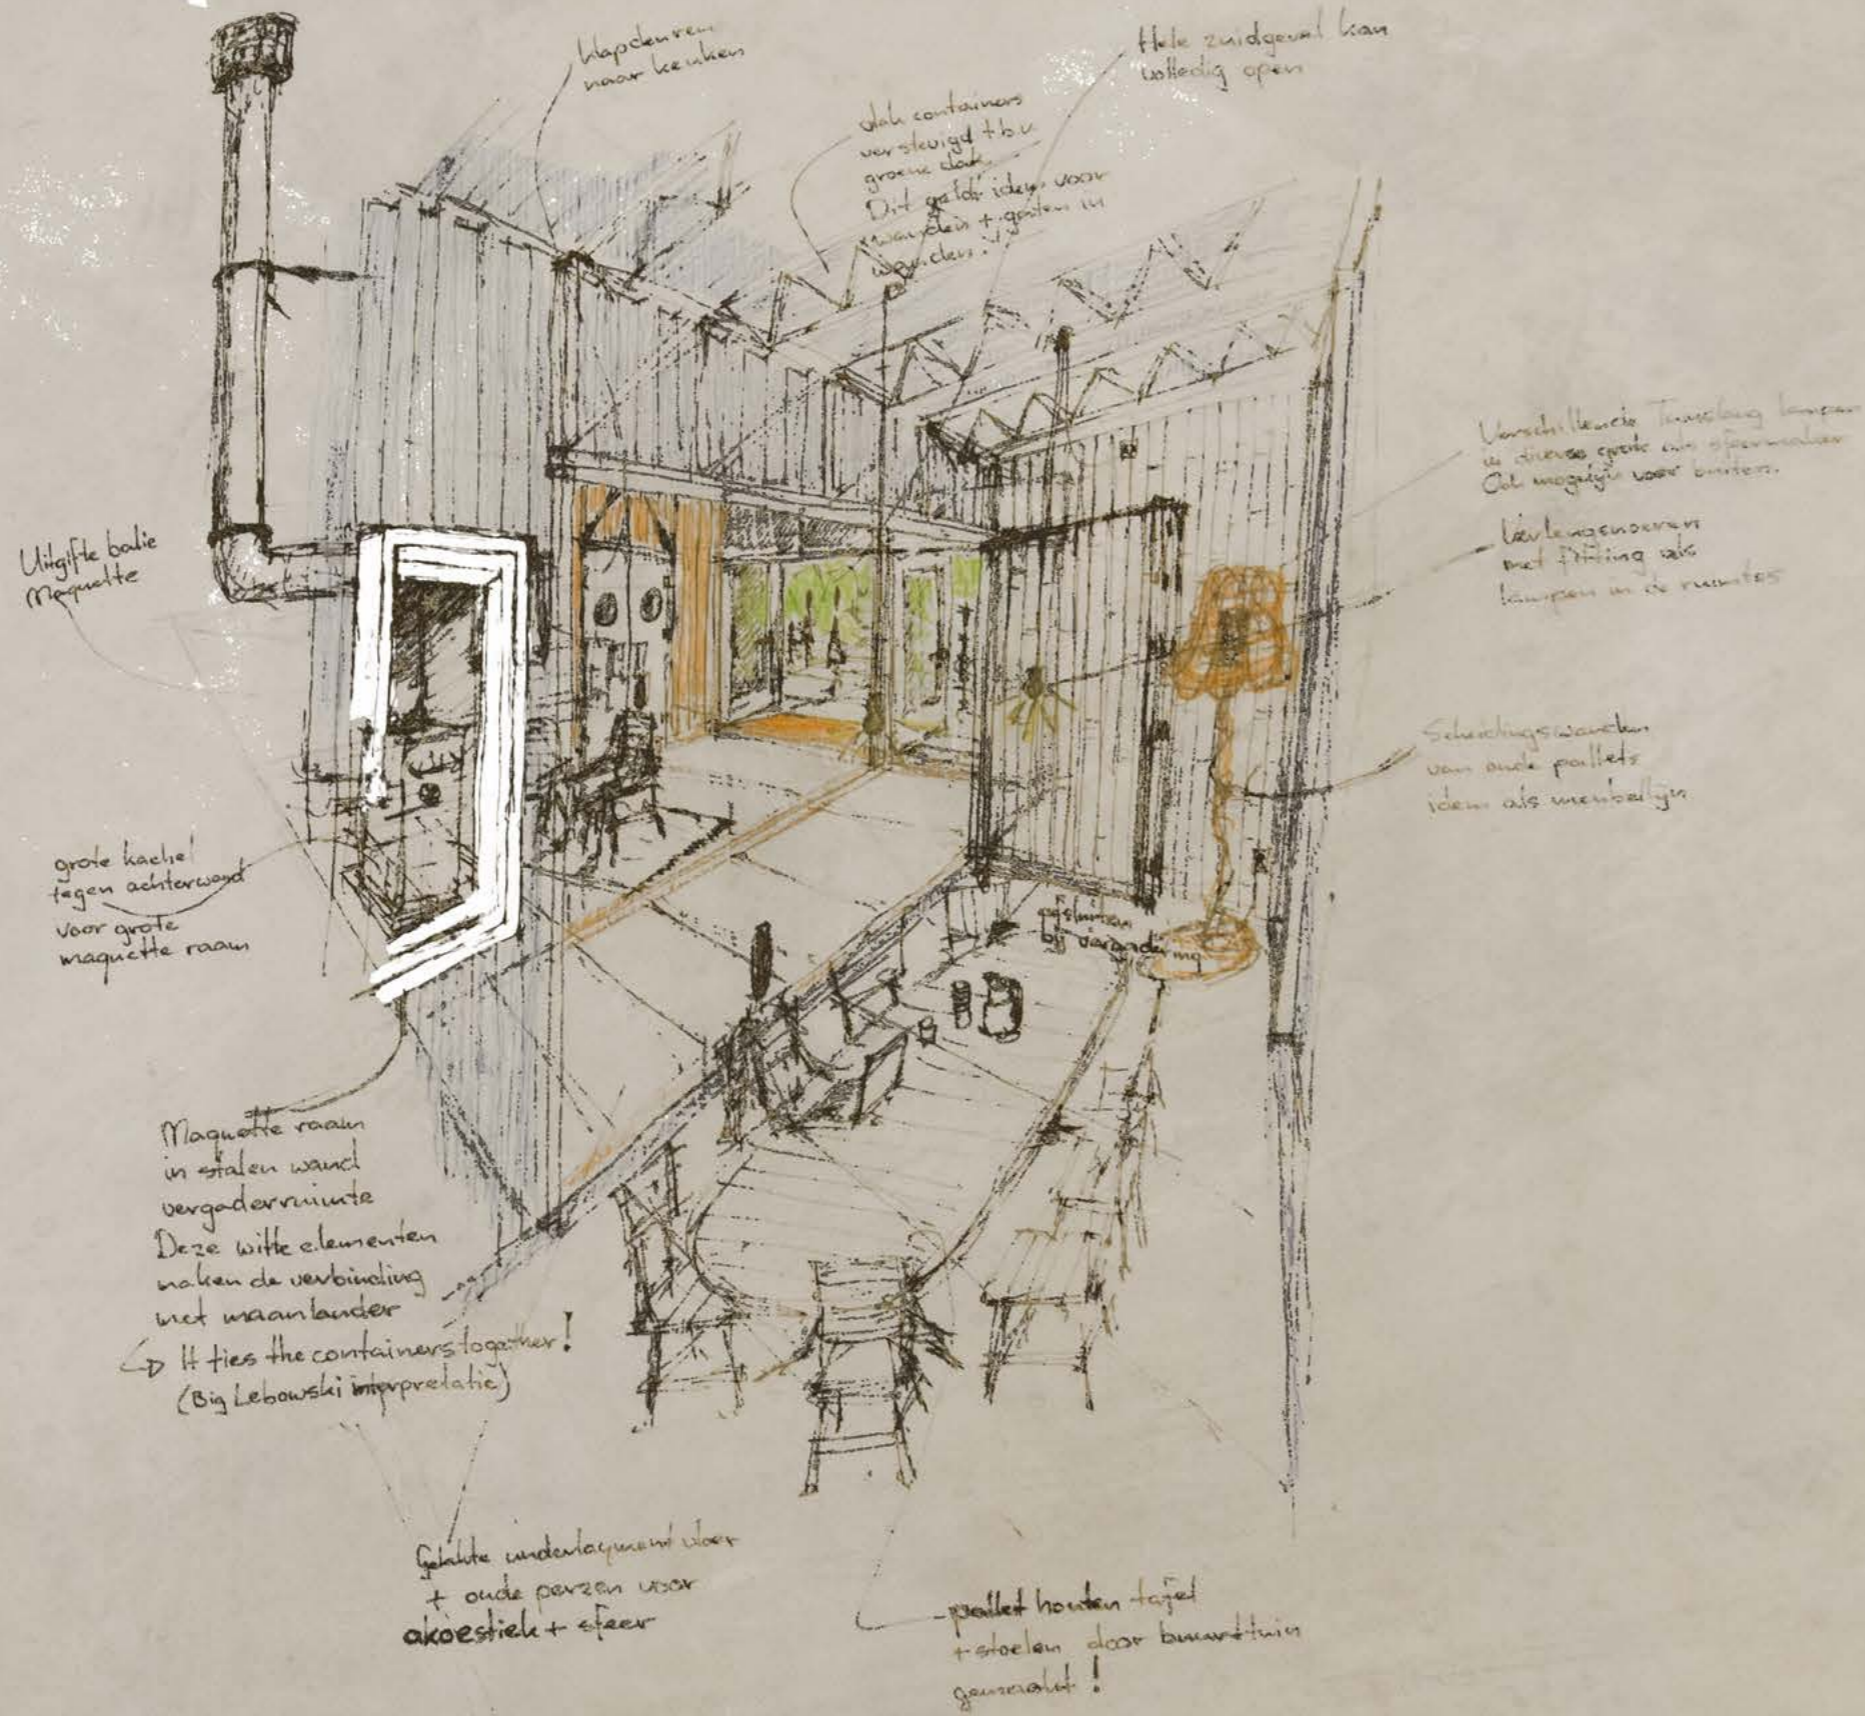 klapdeuren
naar keuken
Hele zuidgevel kan
volledig open
dak containers
verstevigd t.b.v.
groene dak
Dit geldt idem voor
wanden + gaten in
wanden.
Verschillende lampen
in diverse als sfeermaker
Ook mogelijk voor buiten.
Verlengsnoeren
met fitting als
lampen in de ruimtes
Uitgifte balie
Maquette
Scheidingswanden
van oude pallets
idem als
grote kachel
tegen achterwand
voor grote
maquette raam
afsluiten
bij vergadering
Maquette raam
in stalen wand
vergaderruimte
Deze witte elementen
maken de verbinding
met maanlander
It ties the containers together!
(Big Lebowski interpretatie)
Gelakte underlayment vloer
+ oude perzen voor
akoestiek + sfeer
- pallet houten tafel
+ stoelen door buurttuin
gemaakt!